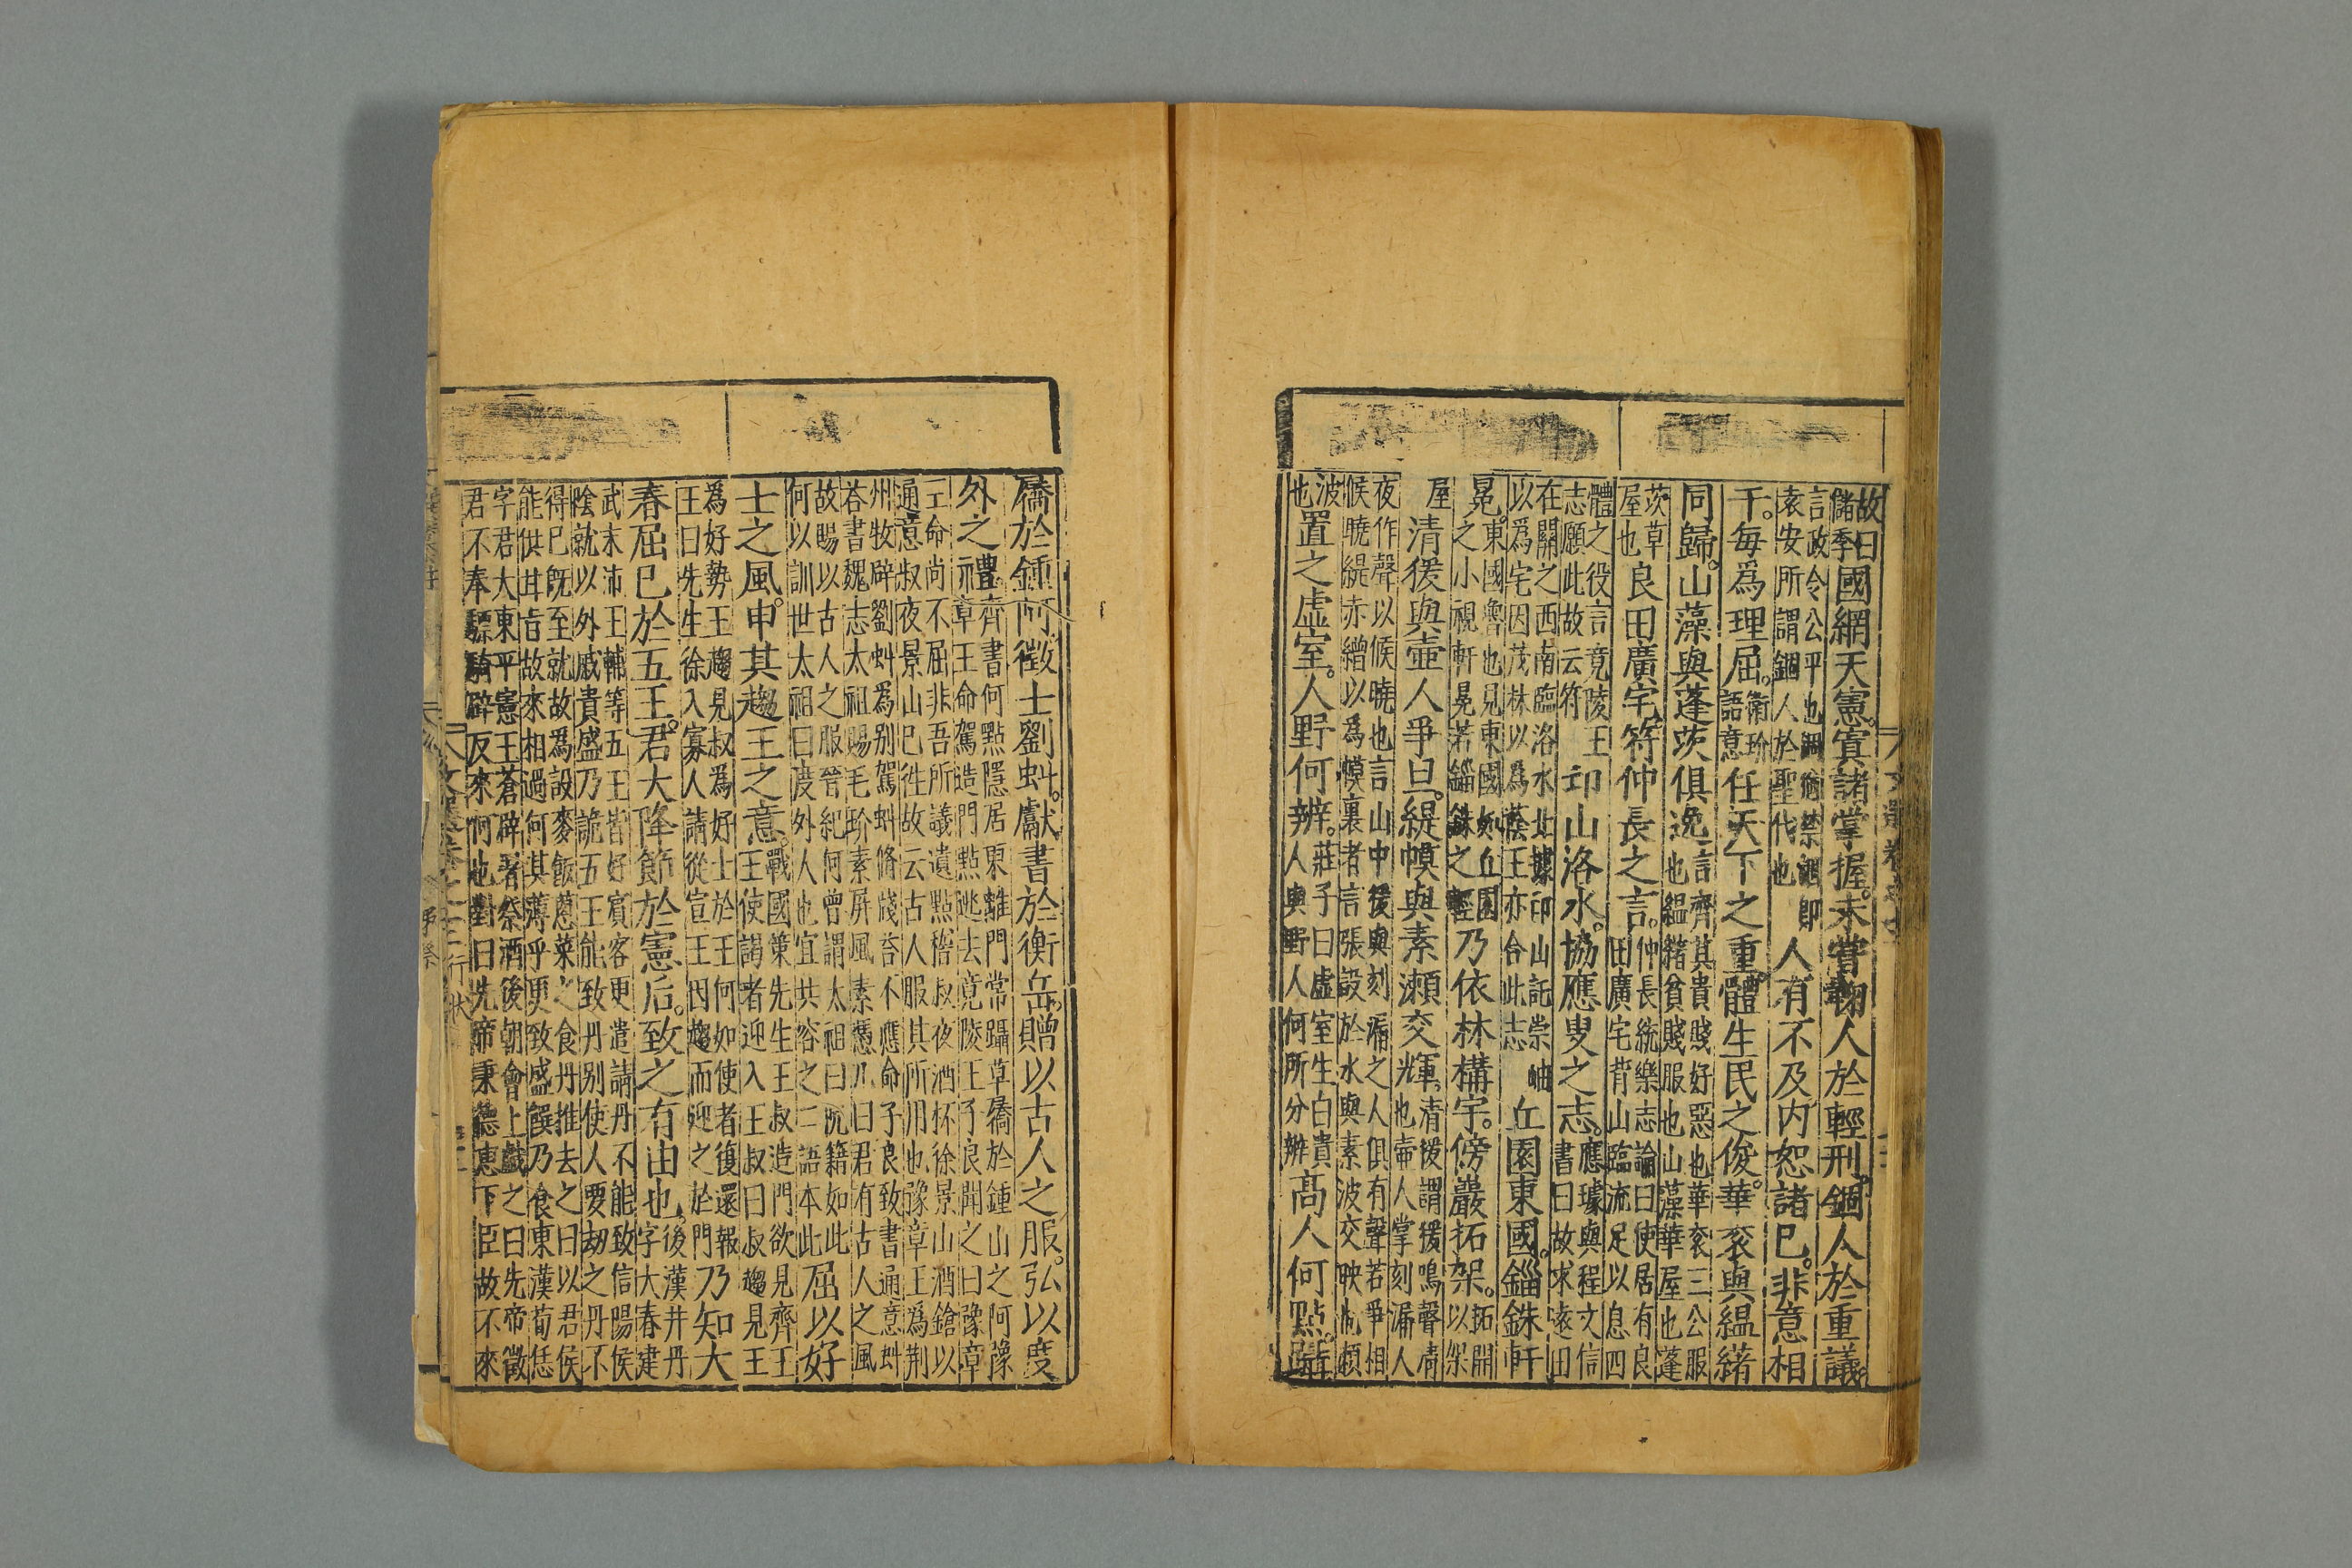 故曰
儲季國網天憲。寘諸掌握。未嘗鞠人於輕刑。錮人於重議。
言政令公平也鞠窮禁錮即
袁安所謂錮人於聖代也
人有不及内恕諸巳。非意相
干。每爲理屈。衛玠
語意
任天下之重體生民之俊。華衮與緼緖
同歸。山藻與蓬茨俱逸。言齊其貴賤好惡也華衮三公服
也緼䋎貧賤服也山藻華屋也蓬
茨草
屋也
良田廣宅。符仲長之言。仲長統樂志論曰使居有良
田廣宅背山臨流足以息四
體之役言竟陵王
志願此故云符
卭山洛水。協應叟之志。應璩與程文信
書曰故求遠田
在關之西南臨洛水北據卭山託崇岫
以爲宅因茂林以爲蔭王亦合此志
丘園東國。錙銖軒
冕。東國魯也見東國如丘園
之小視軒冕若錙銖之輕
乃依林構宇。傍巖拓架。拓開
以架
屋
清猨與壺人爭旦。緹幙與素瀬交輝。清猨謂猨鳴聲清
也壷人掌刻漏人
夜作聲以候曉也言山中猨與刻漏之人俱有聲若爭相
候曉緹赤繒以爲幙裏者言張設於水與素波交映
波
也
置之虚室。人野何辨。莊子曰虛室生白貴
人與野人何所分辨
髙人何點。躡
屩於鍾阿。徵士劉虯。獻書於衡岳。贈以古人之服。弘以度
外之禮。齊書何點隱居東離門常躡草屩於鍾山之阿豫
章王命駕造門點逃去竟陵王子良聞之曰豫章
王命尚不屈非吾所議遺點嵇叔夜酒杯徐景山酒鎗以
通意叔夜景山巳徃故云古人服其所用也豫章王爲荆
州牧辟劉虯爲别駕虯脩牋荅不應命子良致書通意虯
荅書魏志太祖賜毛玠素屏風素憑几曰君有古人之風
故賜以古人之服晉紀何曾謂太祖曰阮籍如此
何以訓世太祖曰度外人也宜共容之二語本此
屈以好
士之風。申其趨王之意。戰國策先生王叔造門欲見齊王
王使謁者迎入王叔曰叔趨見王
爲好勢王趨見叔爲好士於王何如使者復還報
王曰先生徐入寡人請從宣王因趨而迎之於門
乃知大
春屈巳於五王。君大降節於憲后。致之有由也。後漢井丹
字大春建
武末沛王輔等五王皆好賔客更遣請丹不能致信陽侯
陰就以外戚貴盛乃詭五王能致丹别使人要劫之丹不
得巳旣至就故爲設麥飯蔥菜之食丹推去之曰以君侯
能供甘㫖故來相過何其薄乎更致盛饌乃食東漢荀恁
字君大東平憲王蒼辟署祭酒後朝會上戲之曰先帝徵
君不奉驃騎辟反來何也對曰先帝秉德惠下臣故不來